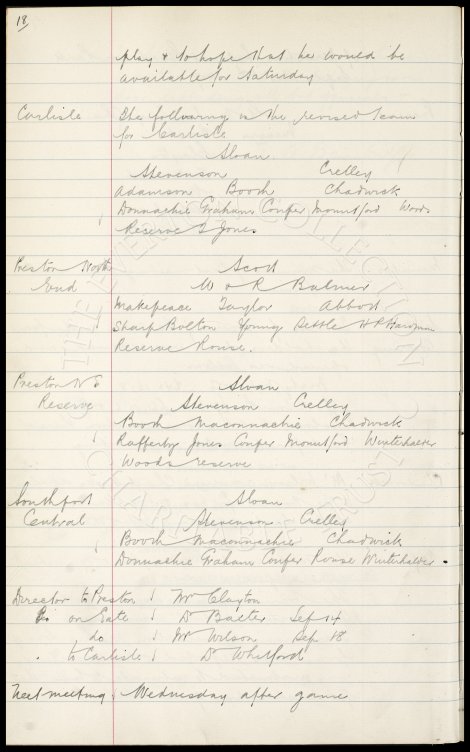 18
play & to hope that he would be
available for Saturday
Carlisle The following is the revised team
for Carlisle
Sloan
Stevenson Crelley
Adamson Booth Chadwick
Donnachie Graham Cooper Mountford Woods
Reserve S Jones
Preston North Scott
End W & R Balmer
Makepeace Taylor Abbott
Sharp Bolton Young Settle H P Hardman
Reserve Rouse.
Preston N E Sloan
Reserve Stevenson Crelley
Booth Maconnachie Chadwick
Rafferty Jones Cooper Mountford Winterhalder
Woods reserve
Southport Sloan
Central Stevenson Crelley
Booth Maconnachie Chadwick
Donnachie Graham Cooper Rouse Winterhalder.
Director to Preston Mr Clayton
Do on Gate Dr Baxter Sep 14
do Mr Wilson Sep 18
to Carlisle Dr Whitford
Next meeting. Wednesday after game
THE EVERTON COLLECTION
CHARITABLE TRUST